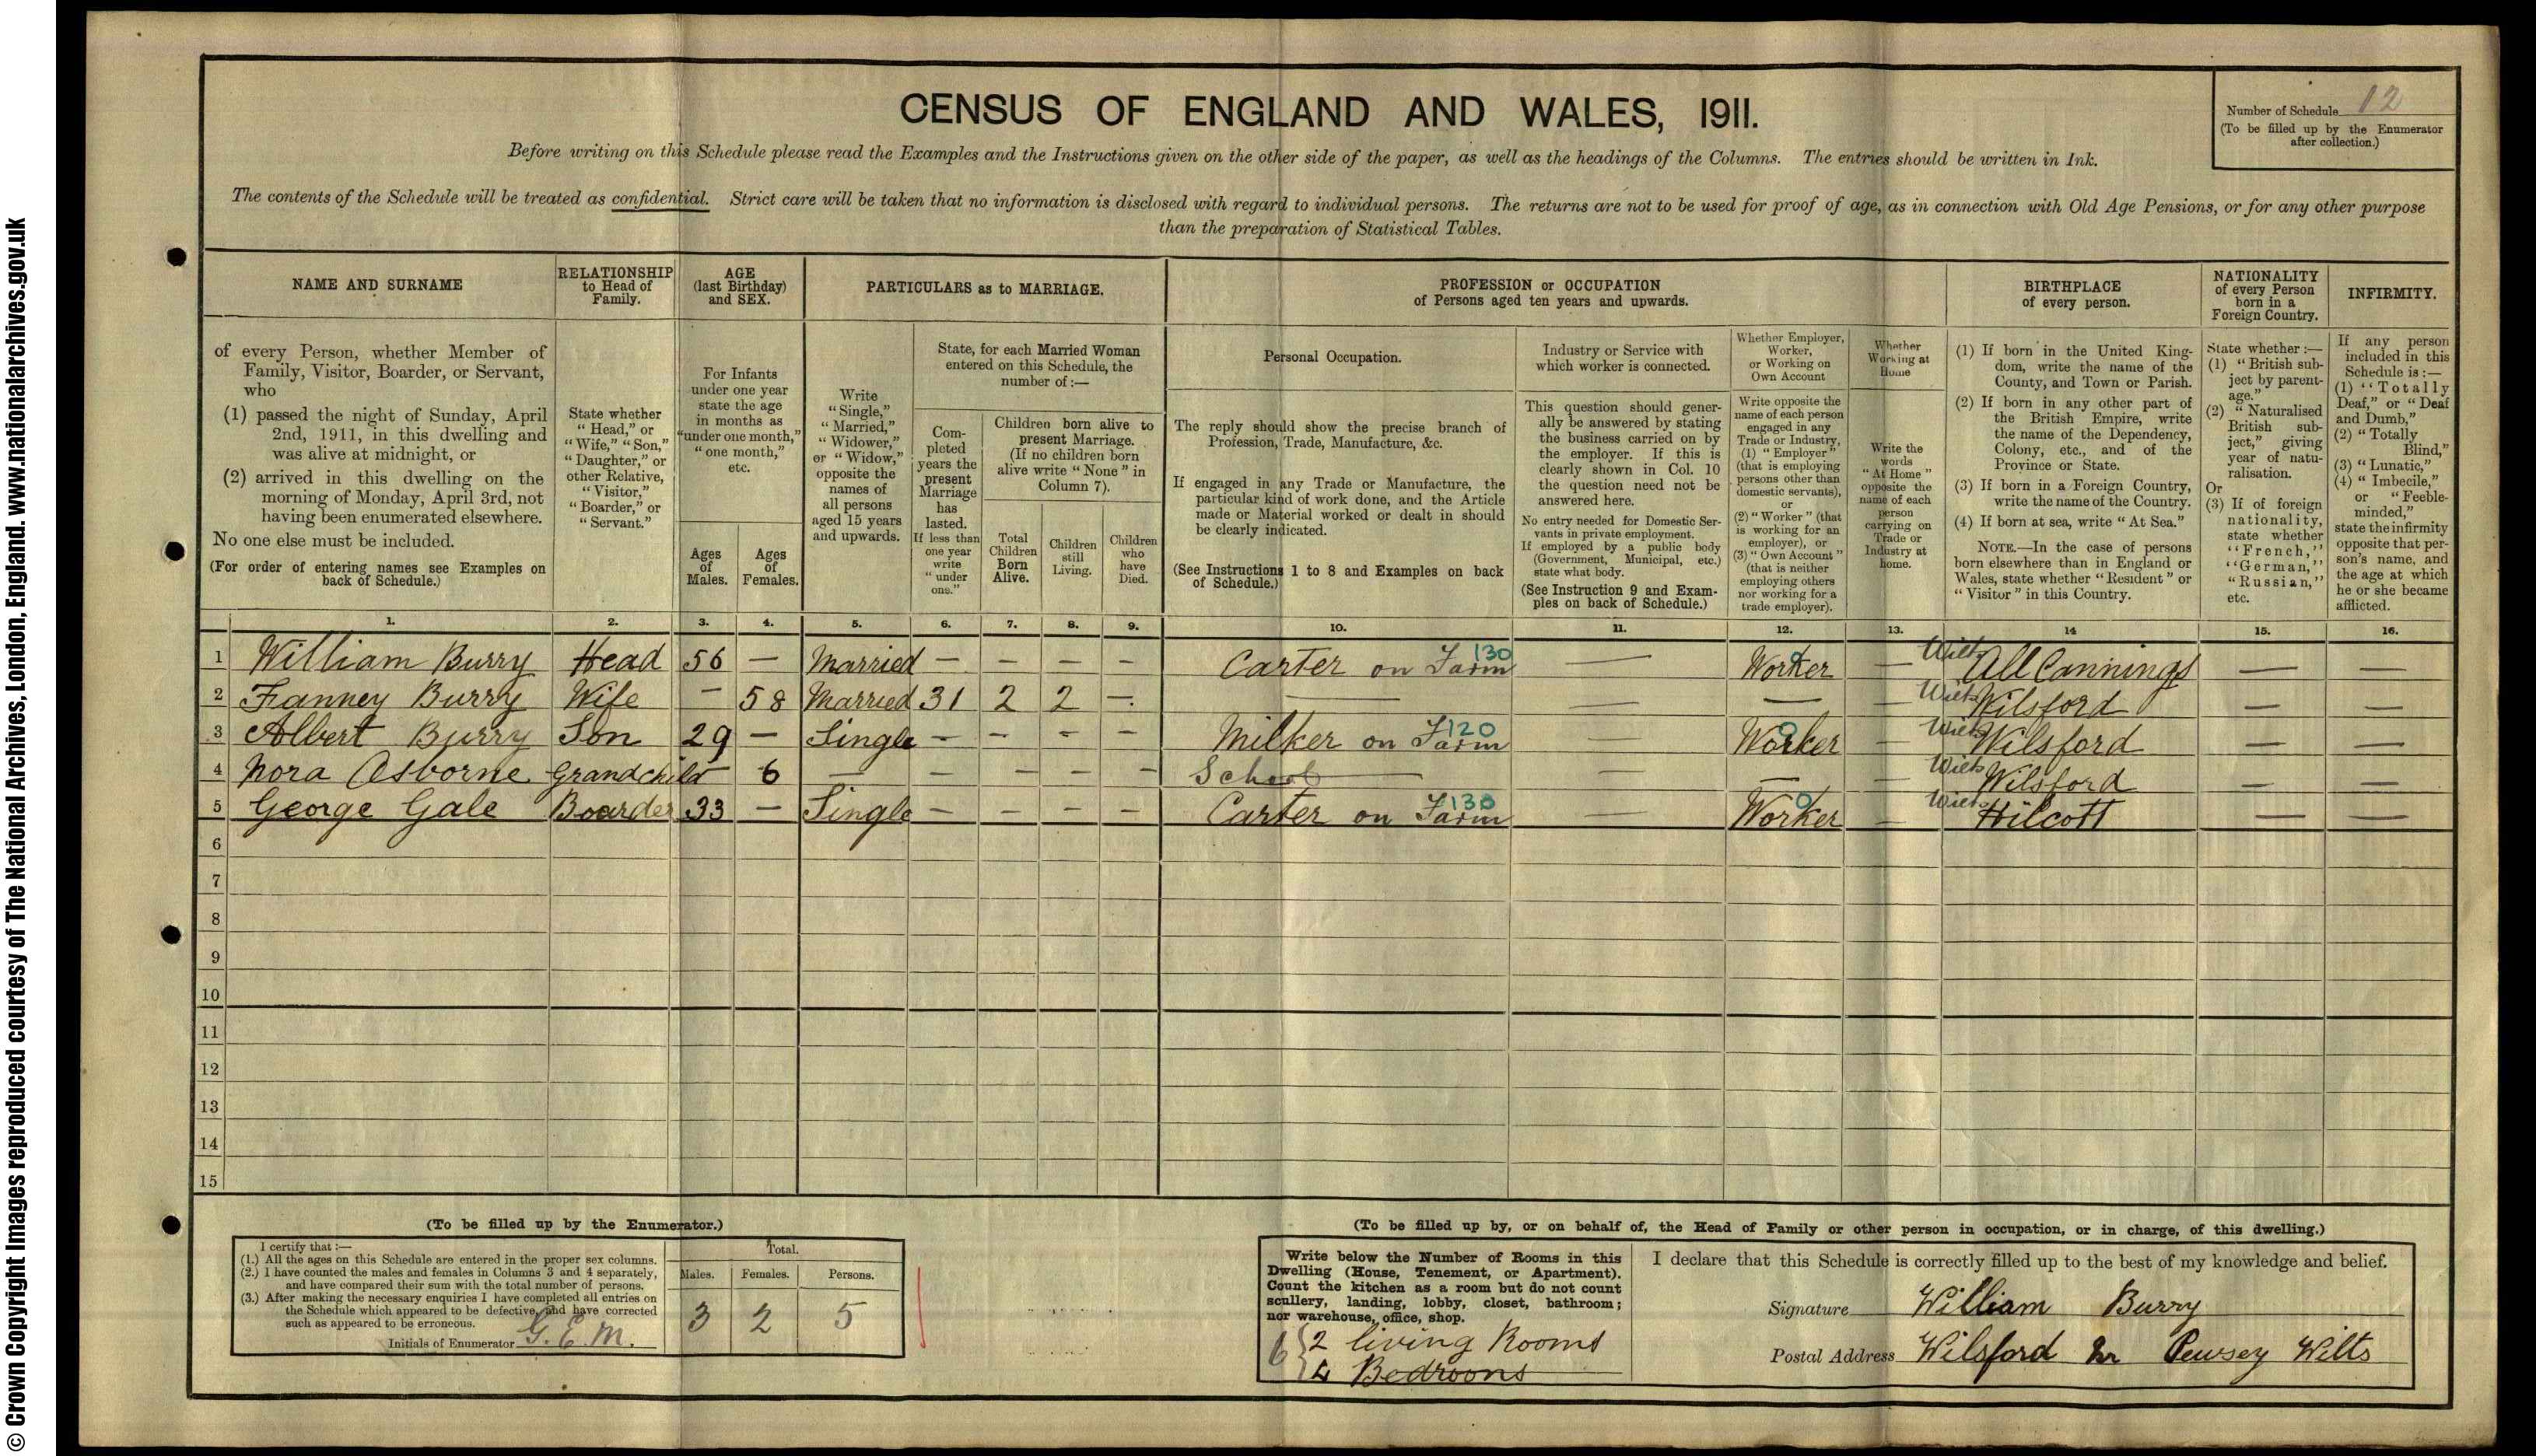 © Crown Copyright Images reproduced courtesy of The National Archives, London, England. www.nationalarchives.gov.uk
CENSUS OF ENGLAND AND WALES, 1911.
Number of Schedule 12
(To be filled up by the Enumerator
after collection.)
Before writing on this Schedule please read the Examples and the Instructions given on the other side of the paper, as well as the headings of the Columns. The entries should be written in Ink.
The contents of the Schedule will be treated as confidential. Strict care will be taken that no information is disclosed with regard to individual persons. The returns are not to be used for proof of age, as in connection with Old Age Pensions, or for any other purpose
than the preparation of Statistical Tables.
NAME AND SURNAME
of every Person, whether Member of
Family, Visitor, Boarder, or Servant,
who
(1) passed the night of Sunday, April
2nd, 1911, in this dwelling and
was alive at midnight, or
(2) arrived in this dwelling on the
morning of Monday, April 3rd, not
having been enumerated elsewhere.
No one else must be included.
(For order of entering names see Examples on
back of Schedule.)
RELATIONSHIP
to Head of
Family.
State whether
"Head," or
"Wife," "Son,"
"Daughter," or
other Relative,
"Visitor,"
"Boarder," or
"Servant."
AGE
(last Birthday)
and SEX.
For Infants
under one year
state the age
in months as
"under one month,"
"one month,"
etc.
Ages
of
Males.
Ages
of
Females.
PARTICULARS as to MARRIAGE.
Write
"Single,"
"Married,"
"Widower,"
or "Widow,"
opposite the
names of
all persons
aged 15 years
and upwards.
State, for each Married Woman
entered on this Schedule, the
number of :—
Com-
pleted
years the
present
Marriage
has
lasted.
If less than
one year
write
"under
one."
Children born alive to
present Marriage.
(If no children born
alive write "None" in
Column 7).
Total
Children
Born
Alive.
Children
still
Living.
Children
who
have
Died.
PROFESSION or OCCUPATION
of Persons aged ten years and upwards.
Personal Occupation.
The reply should show the precise branch of
Profession, Trade, Manufacture, &c.
If engaged in any Trade or Manufacture, the
particular kind of work done, and the Article
made or Material worked or dealt in should
be clearly indicated.
(See Instructions 1 to 8 and Examples on back
of Schedule.)
Industry or Service with
which worker is connected.
This question should gener-
ally be answered by stating
the business carried on by
the employer. If this is
clearly shown in Col. 10
the question need not be
answered here.
No entry needed for Domestic Ser-
vants in private employment.
If employed by a public body
(Government, Municipal, etc.)
state what body.
(See Instruction 9 and Exam-
ples on back of Schedule.)
Whether Employer,
Worker,
or Working on
Own Account
Write opposite the
name of each person
engaged in any
Trade or Industry,
(1) "Employer"
(that is employing
persons other than
domestic servants),
or
(2) "Worker" (that
is working for an
employer), or
(3) "Own Account"
(that is neither
employing others
nor working for a
trade employer).
Whether
Working at
Home
Write the
words
"At Home"
opposite the
name of each
person
carrying on
Trade or
Industry at
home.
BIRTHPLACE
of every person.
(1) If born in the United King-
dom, write the name of the
County, and Town or Parish.
(2) If born in any other part of
the British Empire, write
the name of the Dependency,
Colony, etc., and of the
Province or State.
(3) If born in a Foreign Country,
write the name of the Country.
(4) If born at sea, write "At Sea."
NOTE.—In the case of persons
born elsewhere than in England or
Wales, state whether "Resident" or
"Visitor" in this Country.
NATIONALITY
of every Person
born in a
Foreign Country.
State whether :—
(1) "British sub-
ject by parent-
age."
(2) "Naturalised
British sub-
ject," giving
year of natu-
ralisation.
Or
(3) If of foreign
nationality,
state whether
"French,"
"German,"
"Russian,"
etc.
INFIRMITY.
If any person
included in this
Schedule is :—
(1) "Totally
Deaf," or "Deaf
and Dumb,"
(2) "Totally
Blind,"
(3) "Lunatic,"
(4) "Imbecile,"
or "Feeble-
minded,"
state the infirmity
opposite that per-
son's name, and
the age at which
he or she became
afflicted.
1. 2. 3. 4. 5. 6. 7. 8. 9. 10. 11. 12. 13. 14 15. 16.
1 William Burry Head 56 — Married — — — — Carter on Farm 130 — Worker — Wilts All Cannings — —
2 Fanney Burry Wife — 58 Married 31 2 2 — — — — — Wilts Wilsford — —
3 Albert Burry Son 29 — Single — — — — Milker on Farm 120 — Worker — Wilts Wilsford — —
4 Nora Osborne Grandchild — 6 — — — — — School — — — Wilts Wilsford — —
5 George Gale Boarder 33 — Single — — — — Carter on Farm 130 — Worker — Wilts Hilcott — —
6
7
8
9
10
11
12
13
14
15
(To be filled up by the Enumerator.)
I certify that :—
(1.) All the ages on this Schedule are entered in the proper sex columns.
(2.) I have counted the males and females in Columns 3 and 4 separately,
and have compared their sum with the total number of persons.
(3.) After making the necessary enquiries I have completed all entries on
the Schedule which appeared to be defective, and have corrected
such as appeared to be erroneous.
Initials of Enumerator G. E. M.
Total.
Males. Females. Persons.
3 2 5
(To be filled up by, or on behalf of, the Head of Family or other person in occupation, or in charge, of this dwelling.)
Write below the Number of Rooms in this
Dwelling (House, Tenement, or Apartment).
Count the kitchen as a room but do not count
scullery, landing, lobby, closet, bathroom;
nor warehouse, office, shop.
6 { 2 living Rooms
4 Bedrooms
I declare that this Schedule is correctly filled up to the best of my knowledge and belief.
Signature William Burry
Postal Address Wilsford Nr Pewsey Wilts